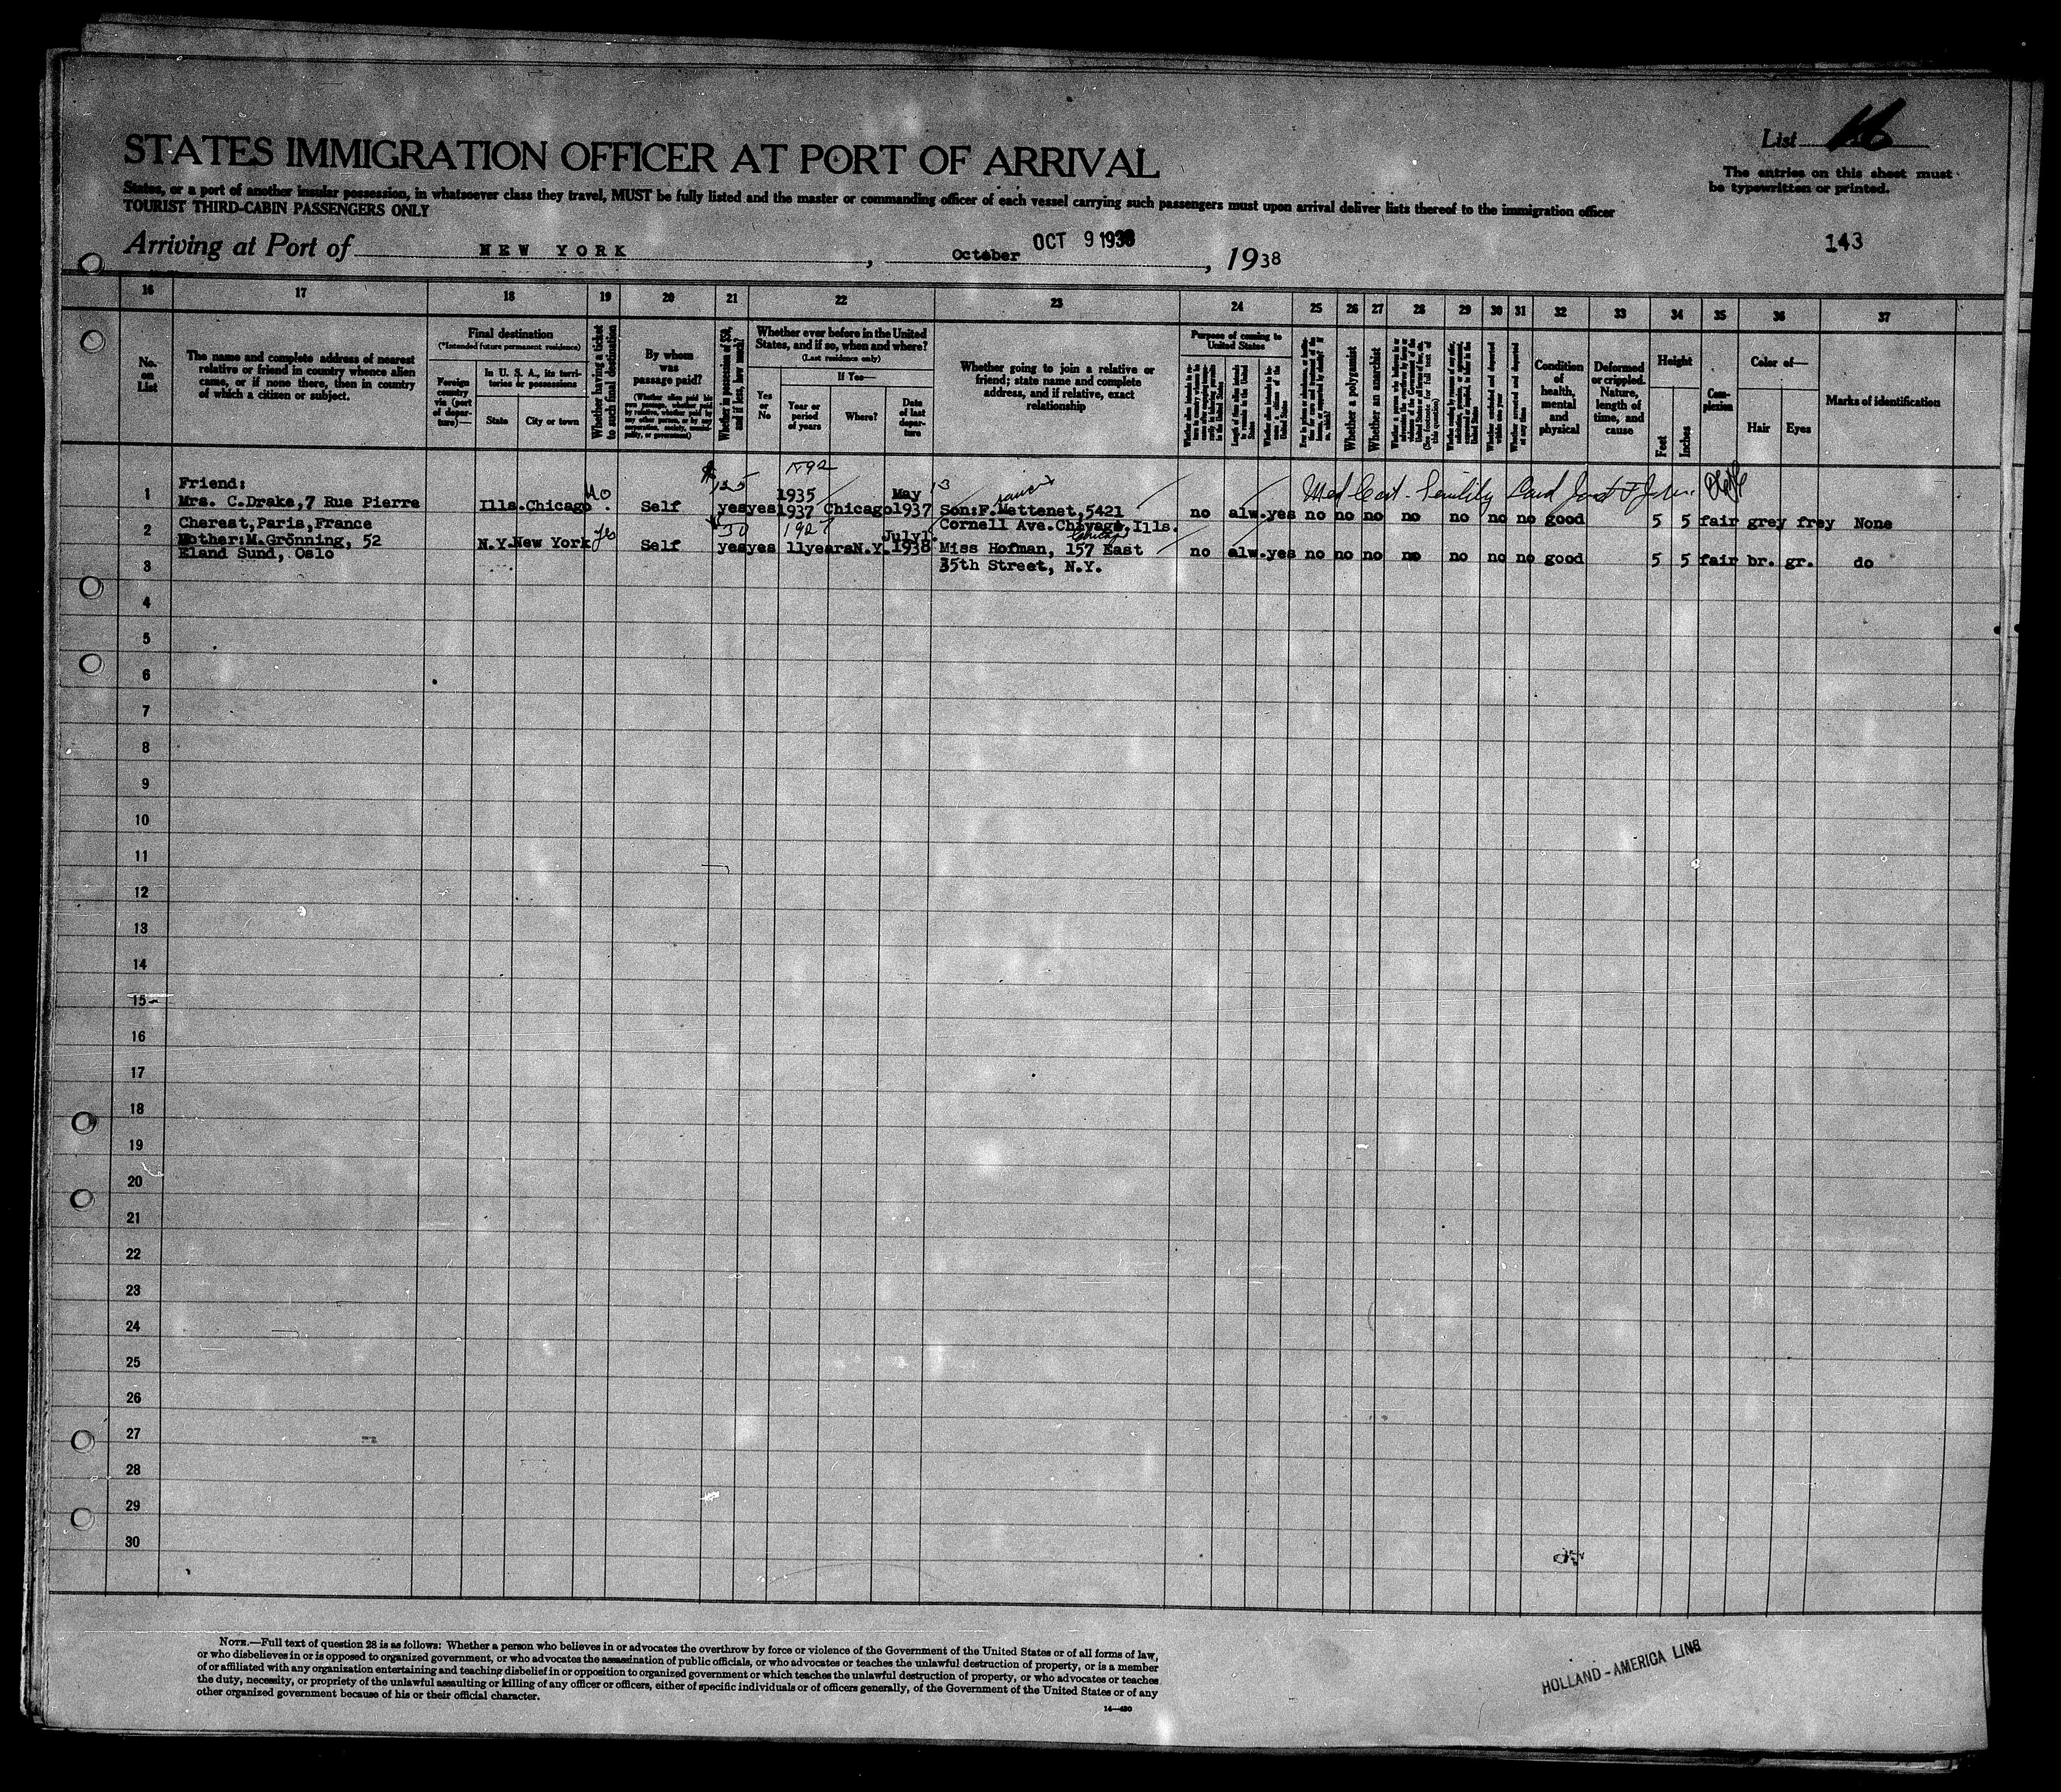 List 16
STATES IMMIGRATION OFFICER AT PORT OF ARRIVAL
The entries on this sheet must
be typewritten or printed.
States, or a port of another insular possession, in whatsoever class they travel, MUST be fully listed and the master or commanding officer of each vessel carrying such passengers must upon arrival deliver lists thereof to the immigration officer
TOURIST THIRD-CABIN PASSENGERS ONLY
Arriving at Port of NEW YORK, October OCT 9 1938, 1938
143
16 17 18 19 20 21 22 23 24 25 26 27 28 29 30 31 32 33 34 35 36 37
No. on List
The name and complete address of nearest
relative or friend in country whence alien
came, or if none there, then in country
of which a citizen or subject.
Final destination
(*Intended future permanent residence)
Foreign country via (port of departure)—
In U. S. A., its territories or possessions
State
City or town
Whether having a ticket to such final destination
By whom was passage paid?
(Whether alien paid his own passage, whether paid by relative, whether paid by any other person, or by any corporation, society, municipality, or government)
Whether in possession of $50, and if less, how much?
Whether ever before in the United
States, and if so, when and where?
(Last residence only)
Yes or No
If Yes—
Year or period of years
Where?
Date of last departure
Whether going to join a relative or
friend; state name and complete
address, and if relative, exact
relationship
Purpose of coming to United States
Whether a polygamist
Whether an anarchist
Condition of health, mental and physical
Deformed or crippled. Nature, length of time, and cause
Height
Feet
Inches
Complexion
Color of—
Hair
Eyes
Marks of identification
1892
$125
1 Friend:
Mrs. C.Drake,7 Rue Pierre
Cherest,Paris,France
Ills. Chicago No Self yes yes 1935 1937 Chicago May 13 1937
Son:F.Mettenet,5421
Cornell Ave.Chivago,Ills.
Chicago
no alw. yes no no no no no no no good 5 5 fair grey frey None
2 Mother:M.Grönning, 52
Eland Sund, Oslo
N.Y. New York yes Self 30 yes yes 1927 11years N.Y. July1. 1938
Miss Hofman, 157 East
35th Street, N.Y.
no alw. yes no no no no no no no good 5 5 fair br. gr. do
3
4
5
6
7
8
9
10
11
12
13
14
15
16
17
18
19
20
21
22
23
24
25
26
27
28
29
30
NOTE.—Full text of question 28 is as follows: Whether a person who believes in or advocates the overthrow by force or violence of the Government of the United States or of all forms of law,
or who disbelieves in or is opposed to organized government, or who advocates the assassination of public officials, or who advocates or teaches the unlawful destruction of property, or is a member
of or affiliated with any organization entertaining and teaching disbelief in or opposition to organized government or which teaches the unlawful destruction of property, or who advocates or teaches
the duty, necessity, or propriety of the unlawful assaulting or killing of any officer or officers, either of specific individuals or of officers generally, of the Government of the United States or of any
other organized government because of his or their official character.
14—480
HOLLAND-AMERICA LINE